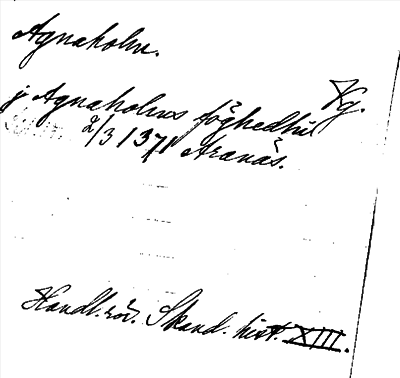 Agnaholm.
Kg.
j Agnaholms föghedhi
2/3 1371 Aranäs.
Handl. rör. Skand. hist. XIII.